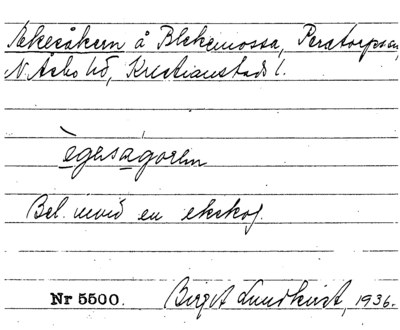 Ekesåkern å Blekemossa, Perstorps sn,
N. Åsbo hd, Kristianstads l.
ègesågoren
Bel. invid en ekskog.
Nr 5500. Birgit Lundkvist, 1936.